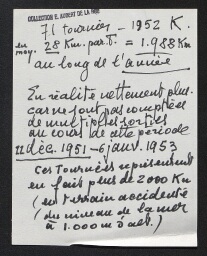 COLLECTION E. AUBERT DE LA RÜE
71 tournées - 1952 K.
en moy. 28 Km. par T. = 1.988 Km
au long de l'année
En réalité nettement plus
car ne sont pas comptées
de multiples sorties
au cours de cette période
11 déc. 1951 - 6 janv. 1953
Ces Tournées représentent
en fait plus de 2000 Km
(en terrain accidenté
(du niveau de la mer
à 1.000 m d'alt.)